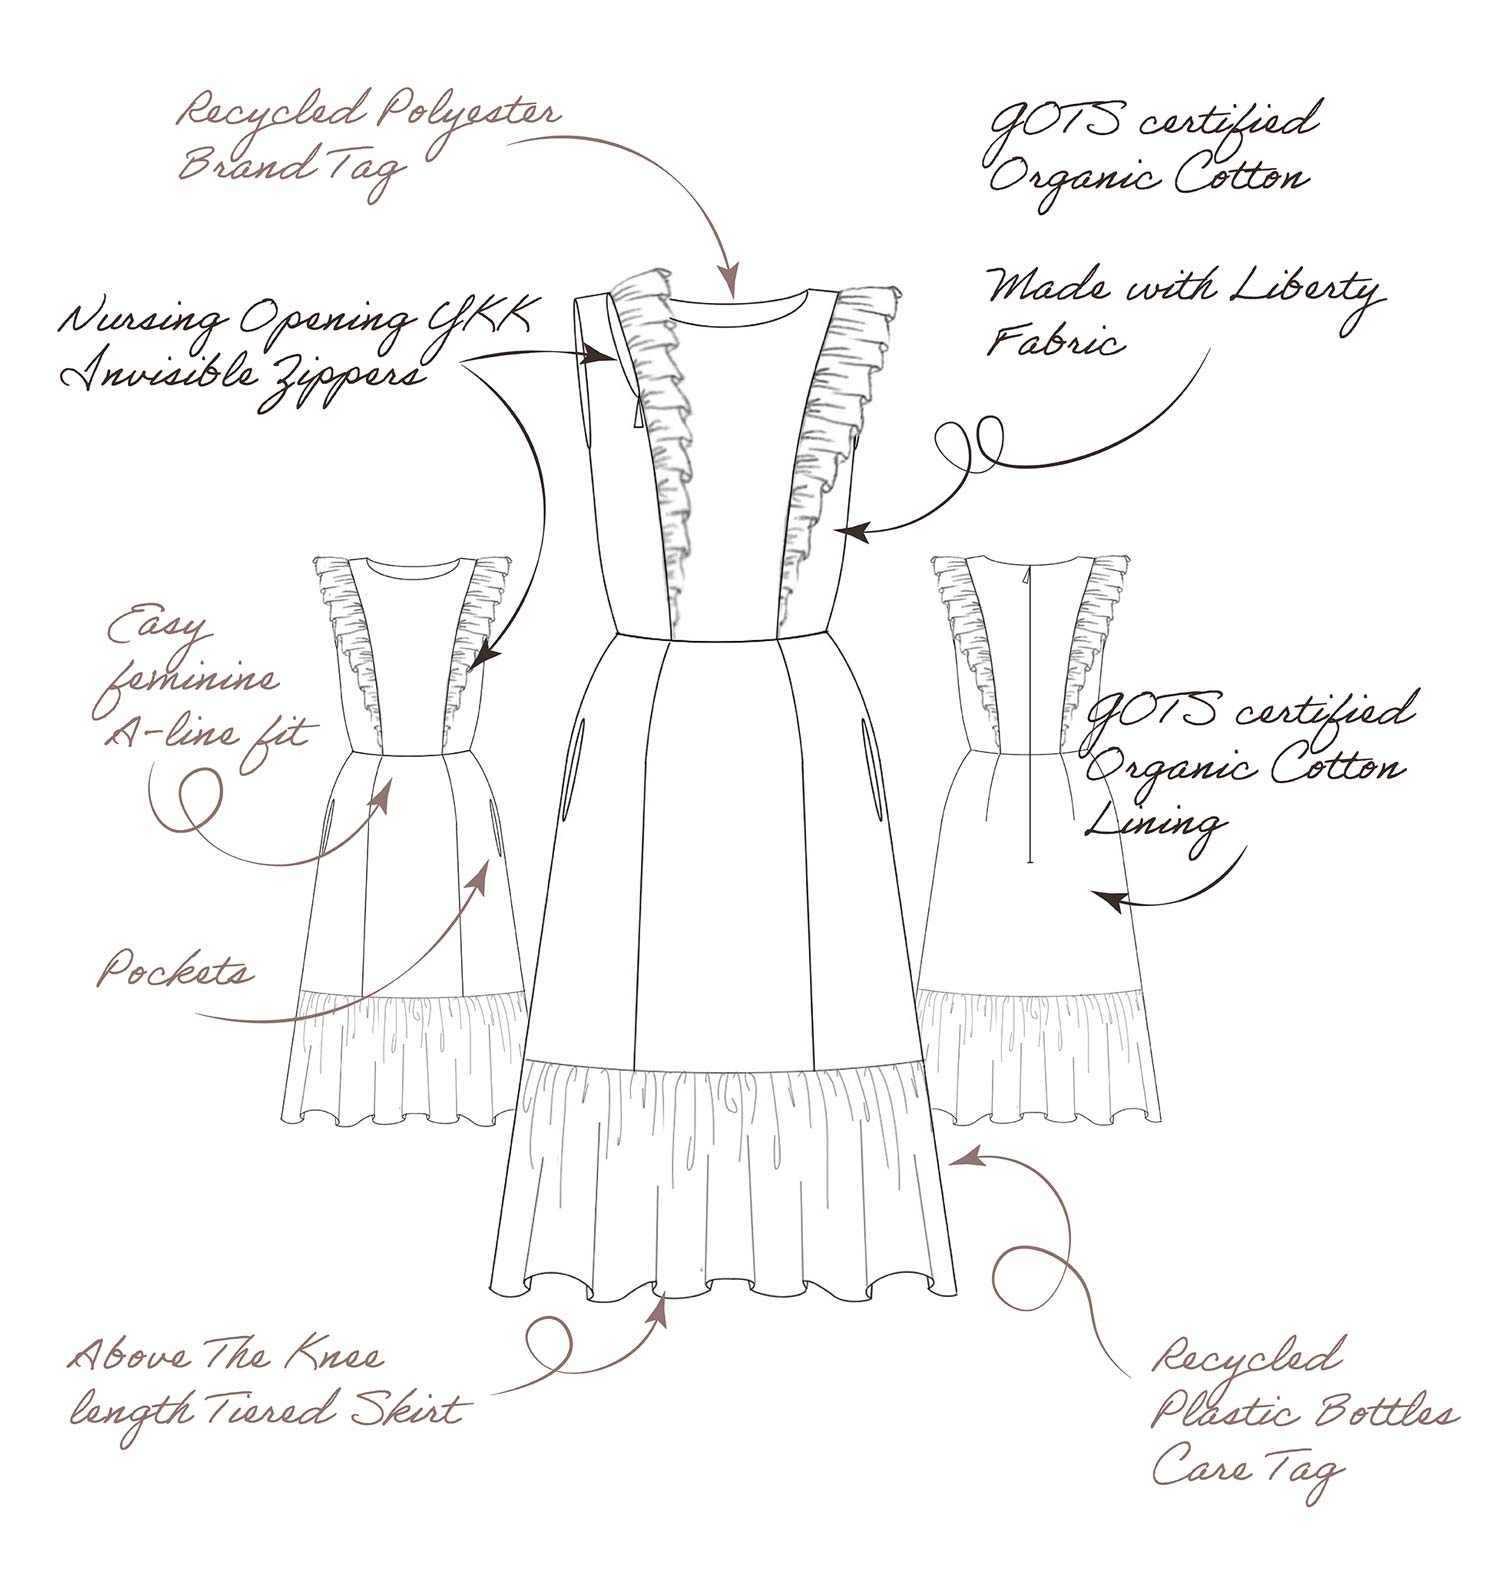 Recycled Polyester
Brand Tag
GOTS certified
Organic Cotton
Made with Liberty
Fabric
Nursing Opening YKK
Invisible Zippers
Easy
feminine
A-line fit
GOTS certified
Organic Cotton
Lining
Pockets
Above The Knee
length Tiered Skirt
Recycled
Plastic Bottles
Care Tag